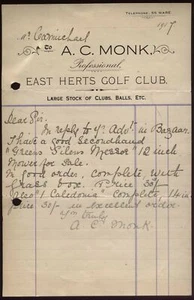 TELEPHONE, 30 WARE.
1917
Carmichael
To A. C. MONK,
Professional,
EAST HERTS GOLF CLUB.
LARGE STOCK OF CLUBS, BALLS, ETC.
Dear Sir.
In reply to yr Advt in Bazaar,
I have a good secondhand
"Greens Silens Messor" 12 inch
Mower for Sale.
In good order, complete with
Grass box. Price 30/-
Also 1 Caledonia complete, 14 in
Price 30/- in excellent order.
Yrs truly
A C Monk.